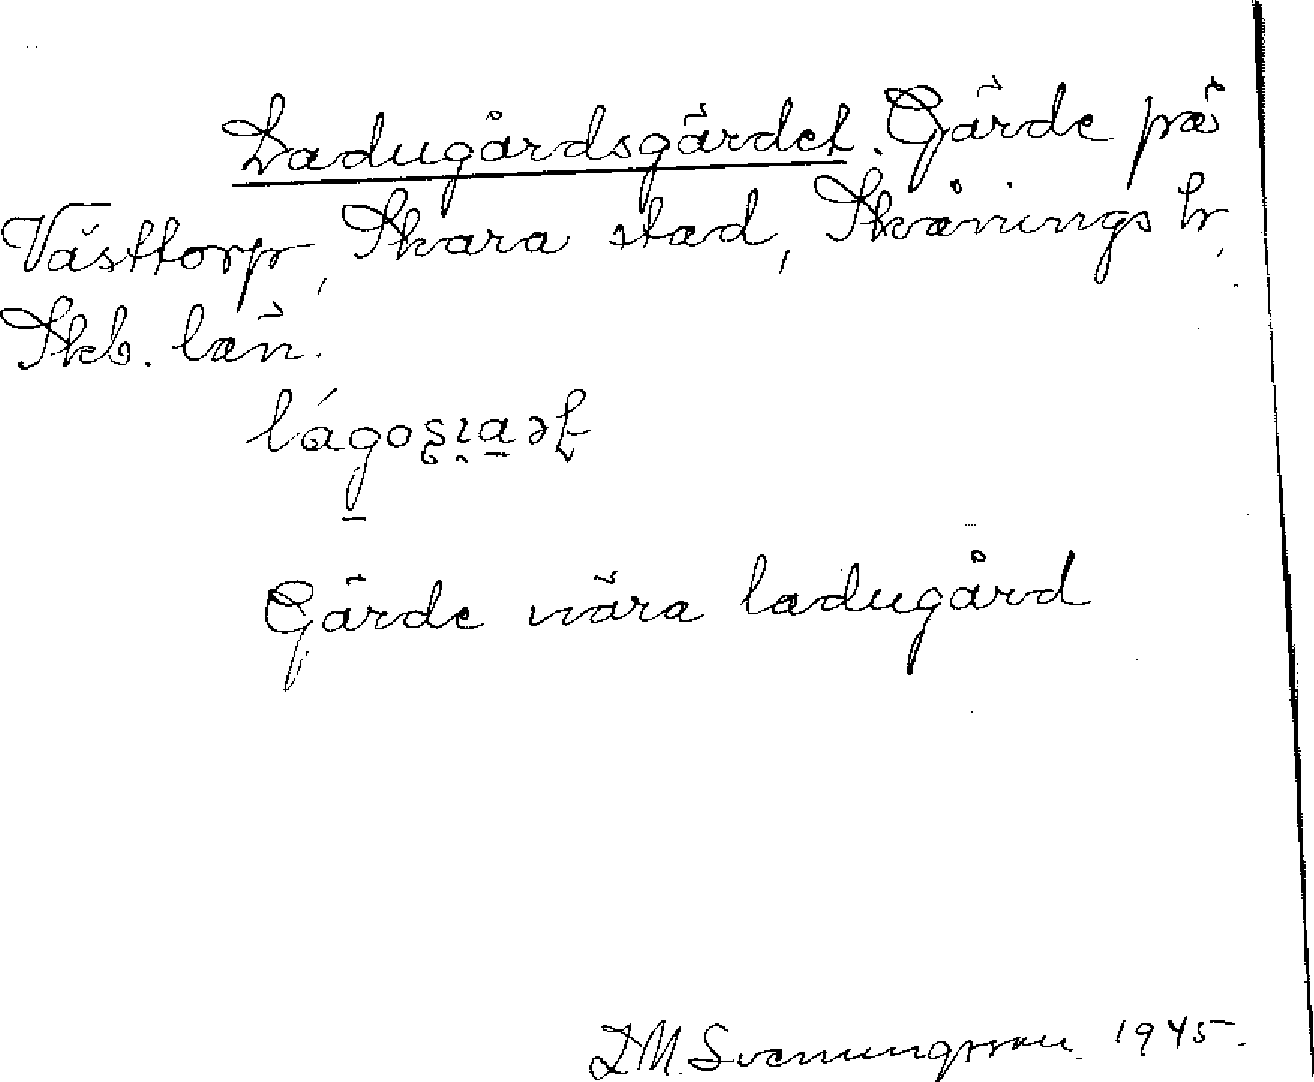 Ladugårdsgärdet. Gärde på
Västtorp, Skara stad, Skånings hr,
Skb. län.
Gärde nära ladugård
D.M. Svenungsson 1945.